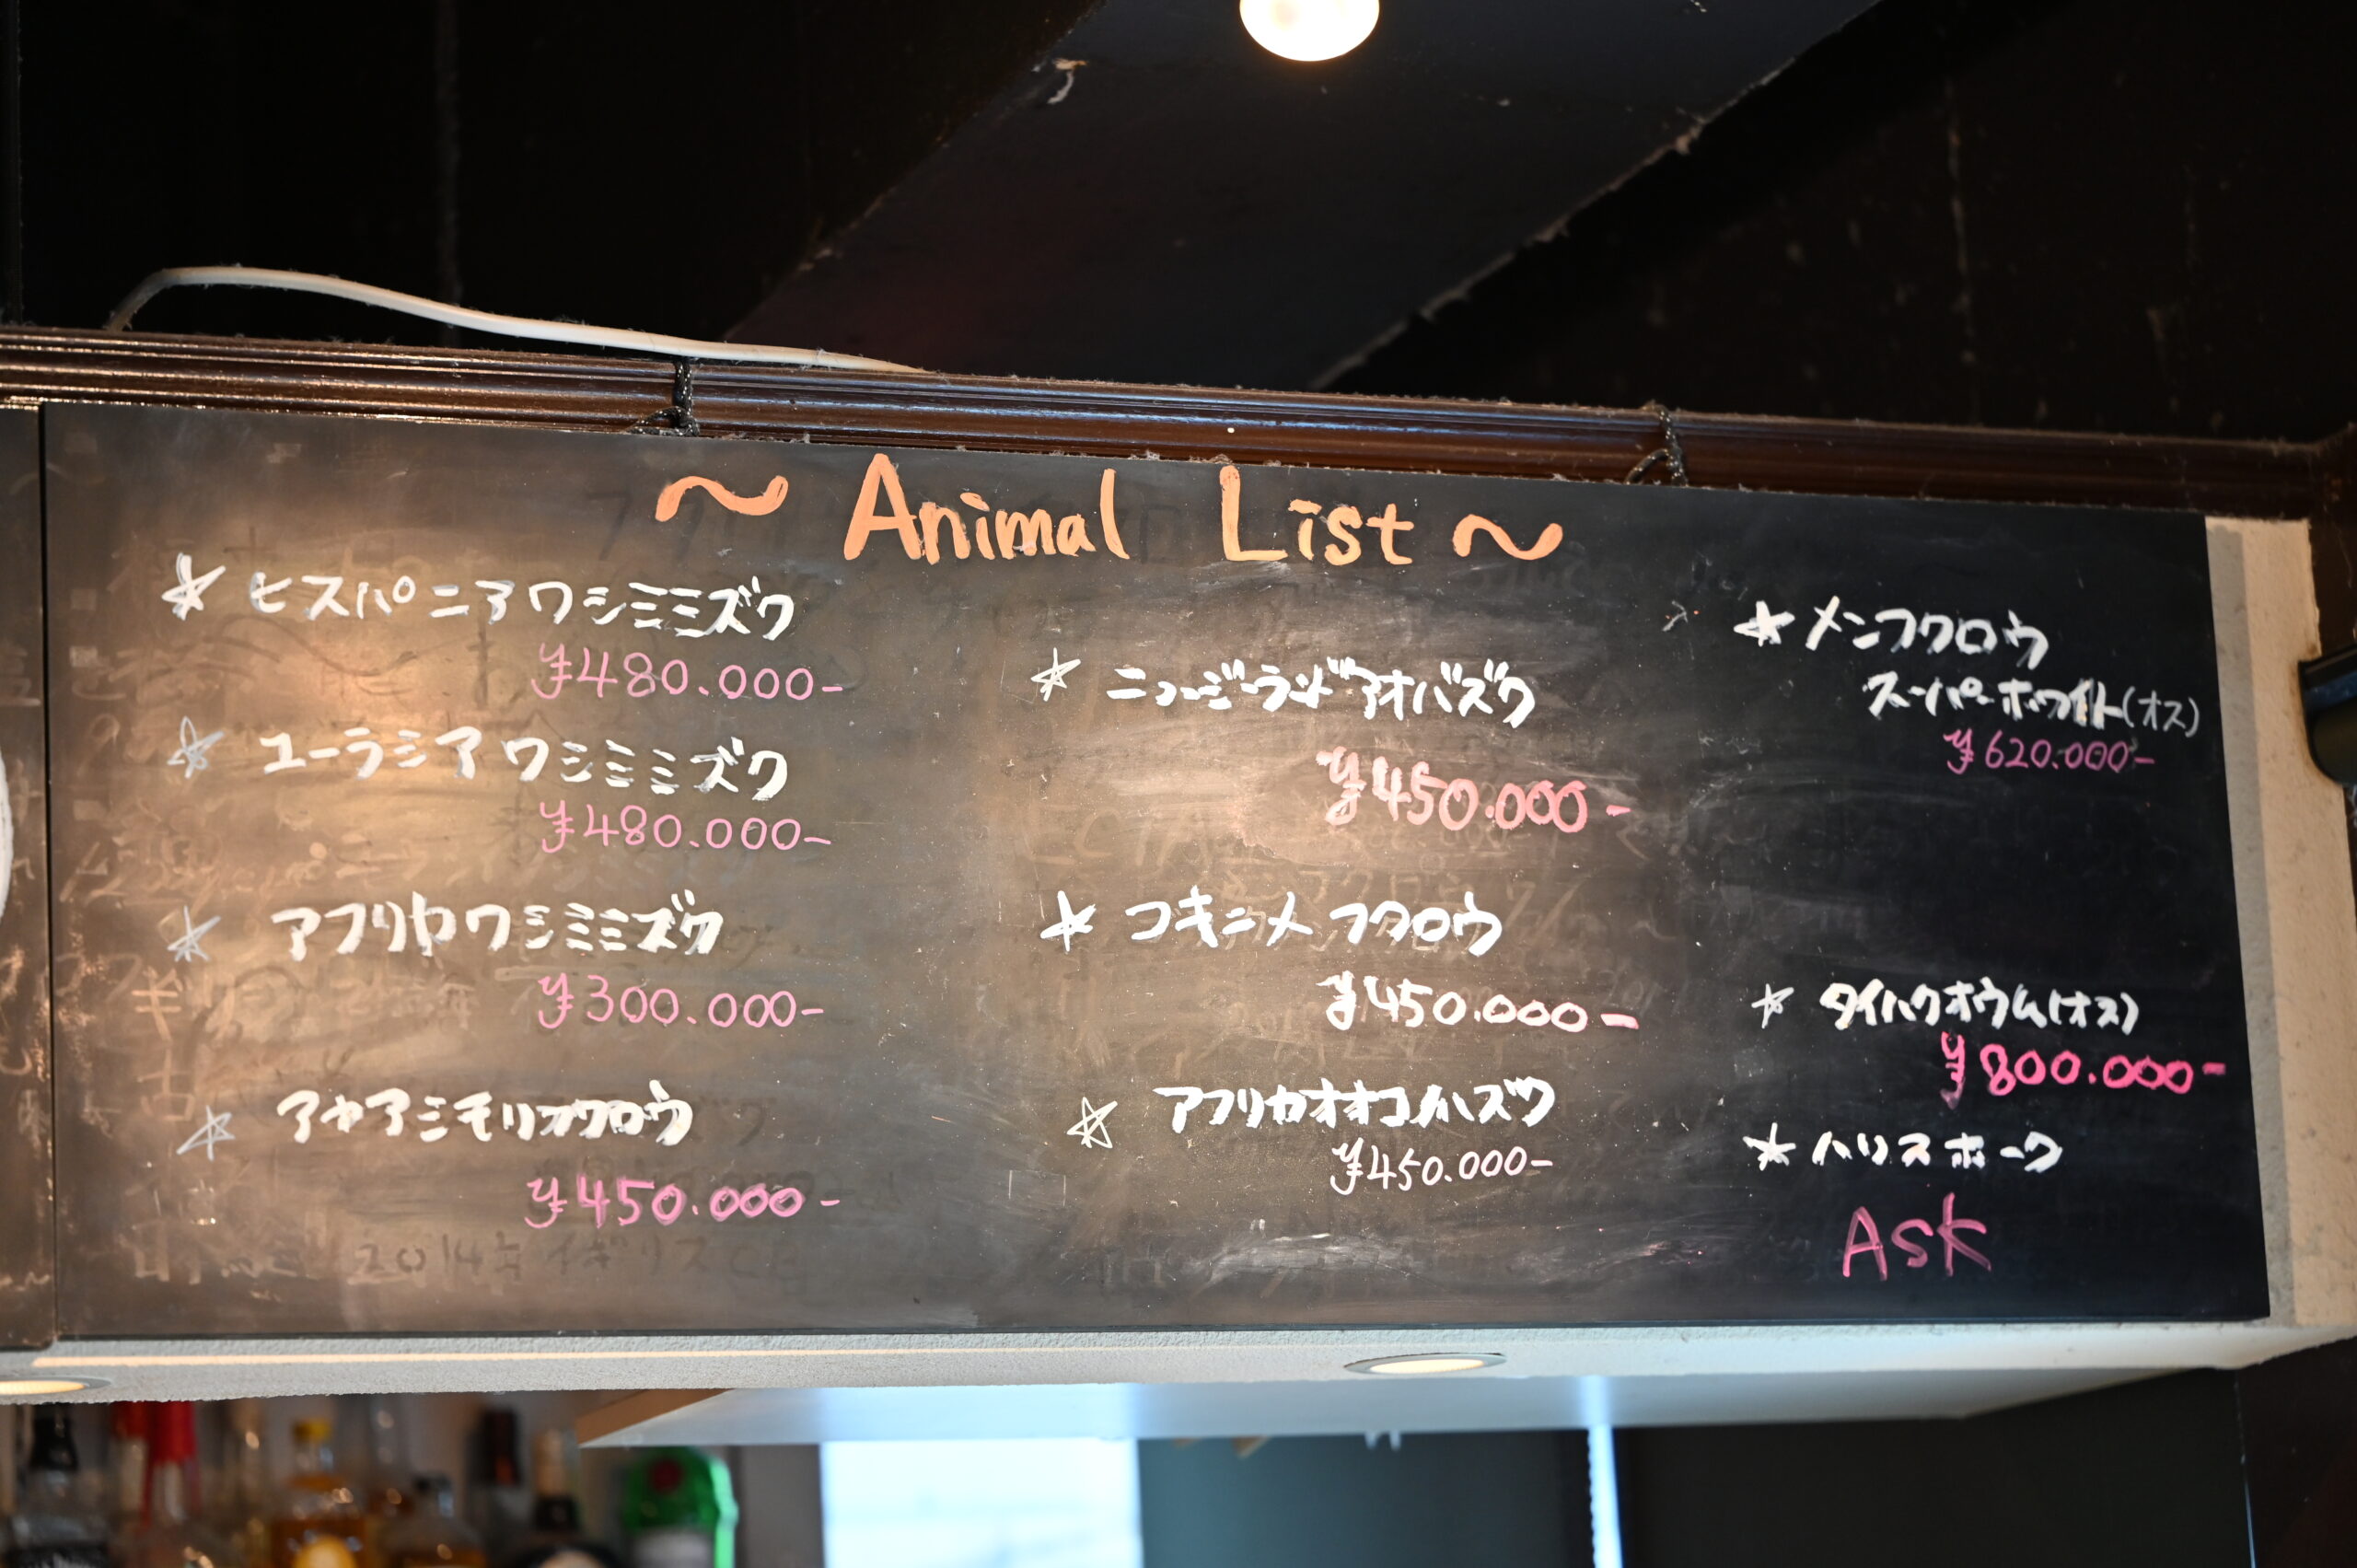 ～ Animal List ～
☆ ヒスパニアワシミミズク
¥480.000-
☆ ユーラシアワシミミズク
¥480.000-
☆ アフリカワシミミズク
¥300.000-
☆ アカアシモリフクロウ
¥450.000-
☆ ニュージーランドアオバズク
¥450.000-
☆ コキンメフクロウ
¥450.000-
☆ アフリカオオコノハズク
¥450.000-
☆ メンフクロウ
スーパーホワイト(オス)
¥620.000-
☆ タイハクオウム(オス)
¥800.000-
☆ ハリスホーク
ASK